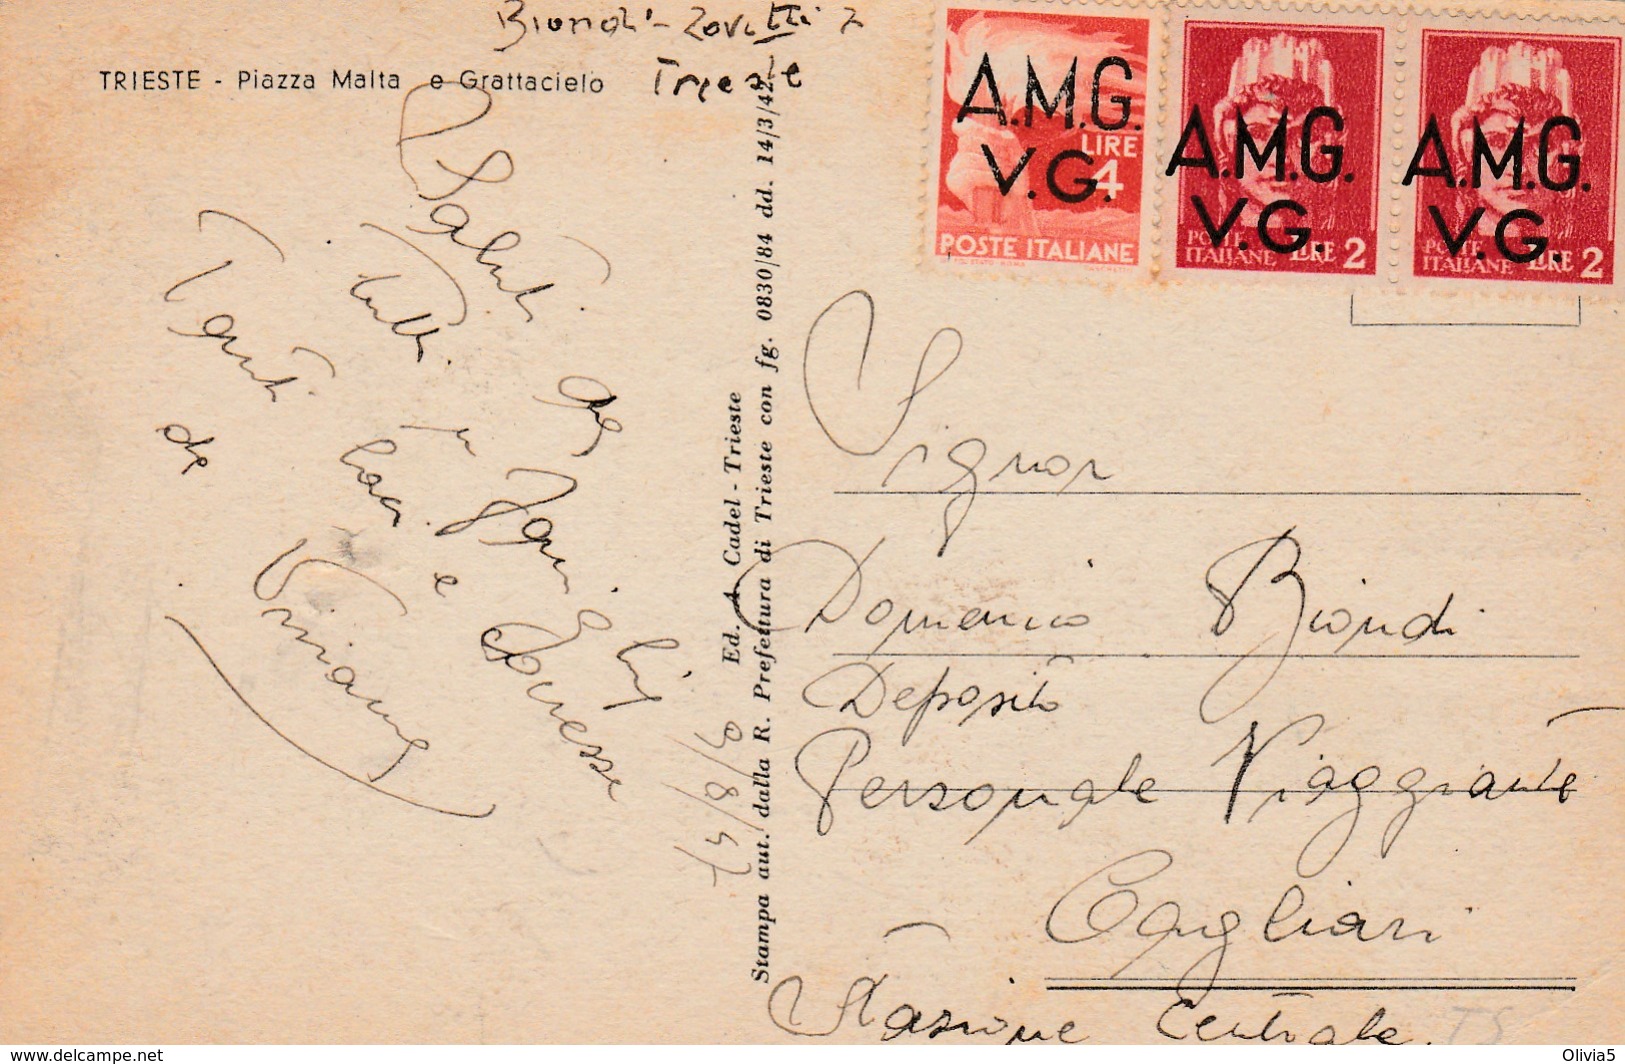 Biondi - Zovetti 2
Trieste
TRIESTE - Piazza Malta e Grattacielo
A.M.G.
V.G.
LIRE
4
POSTE ITALIANE
A.M.G.
V.G.
POSTE
ITALIANE LIRE 2
A.M.G.
V.G.
POSTE
ITALIANE LIRE 2
Saluti da
tutti in famiglia
Tanti baci e carezze
da Viviana
9/8/47
Ed. A. Cadel - Trieste
Stampa aut. dalla R. Prefettura di Trieste con fg. 0830/84 dd. 14/3/42
Signor
Domenico Biondi
Deposito
Personale Viaggiante
Cagliari
Stazione Centrale
TS
© Delcampe.net
Olivia5